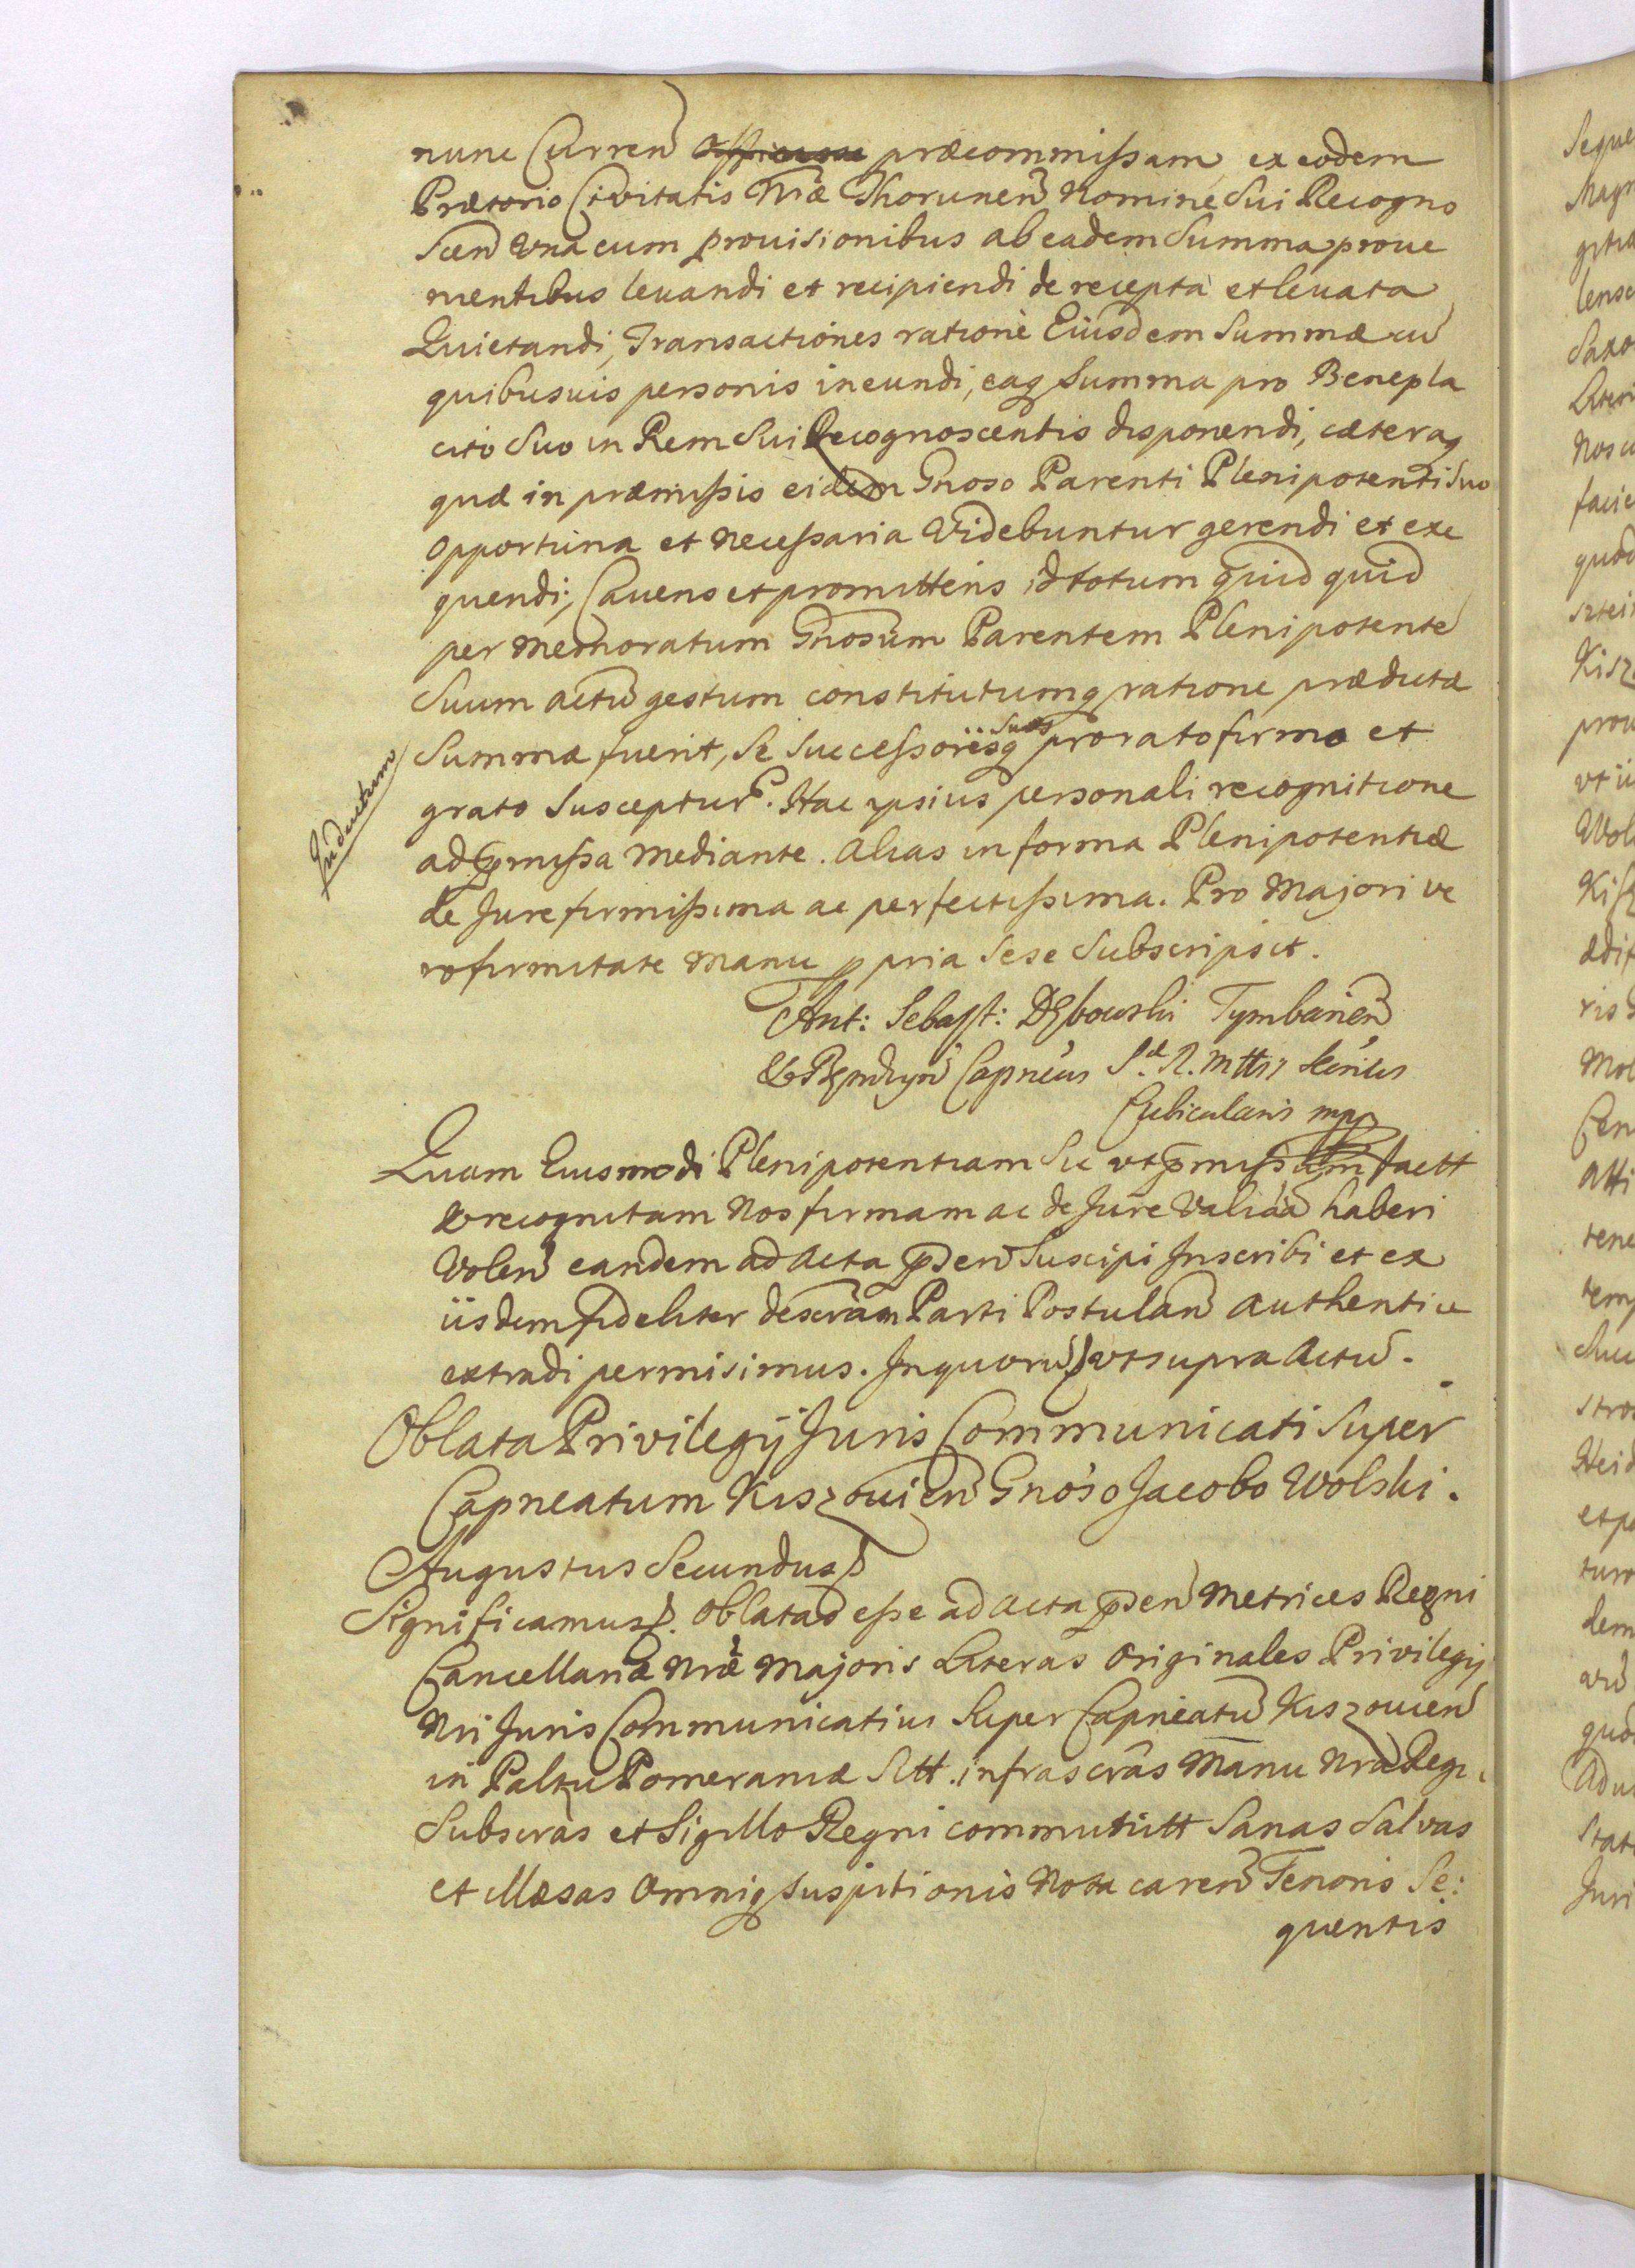 nunc Curren præcommissam ex eodem
Prætorio Civitatis Nræ Thorunen Nomine Sui Recogno
scen Una cum provisionibus ab eadem Summa prove
nientibus levandi et recipiendi de recepta et levata
Quietandi, Transactiones ratione Eiusdem Summæ cu
quibusuis personis ineundi, eaq Summa pro Benepla
cito Suo in Rem Sui Recognoscentis disponendi, cæteraq
quæ in præmissis eidem Gnoso Parenti Plenipotenti Suo
opportuna et Necessaria Videbuntur gerendi et exe
quendi, Cavens et promittens id totum quid quid
per Memoratum Gnosum Parentem Plenipotente
Suum actu gestum constitutumq ratione prædictæ
Summæ fuerit, se Successoresq suos pro rato firmo et
grato Susceptur. Hac ipsius personali recognitione
ad pmissa Mediante. Alias in forma Plenipotentiæ
de Jure firmissima ac perfectissima. Pro Majori ve
ro firmitate Manu ppria Sese Subscripsit.
Ant: Sebast: Dębowski Tymbarien
& Będzyn Capneus S. R. Mttis
Cubicularis mpp
Quam Eiusmodi Plenipotentiam Sic ut pmissum factt
& recognitam Nos firmam ac de Jure Validam haberi
Volen eandem ad Acta pden Suscipi Inscribi et ex
iisdem fideliter descram Parti Postulan Authentice
extradi permisimus. In quoru ut supra Actu.
Oblata Privilegij Juris Communicati Super
Capneatum Kiszovien Gnoso Jacobo Wolski.
Augustus Secundus
Significamus. Oblatas esse ad Acta pden Metrices Regni
Cancellariæ Nræ Majoris Literas Originales Privilegij
Nri Juris Communicativi Super Capneatu Kiszovien
in Paltu Pomeraniæ Sitt. infrascras Manu Nra Regi
Subscras et Sigillo Regni communitt Sanas Salvas
et illæsas Omniq Suspitionis Nota caren Tenoris Se:
quentis
Inductum